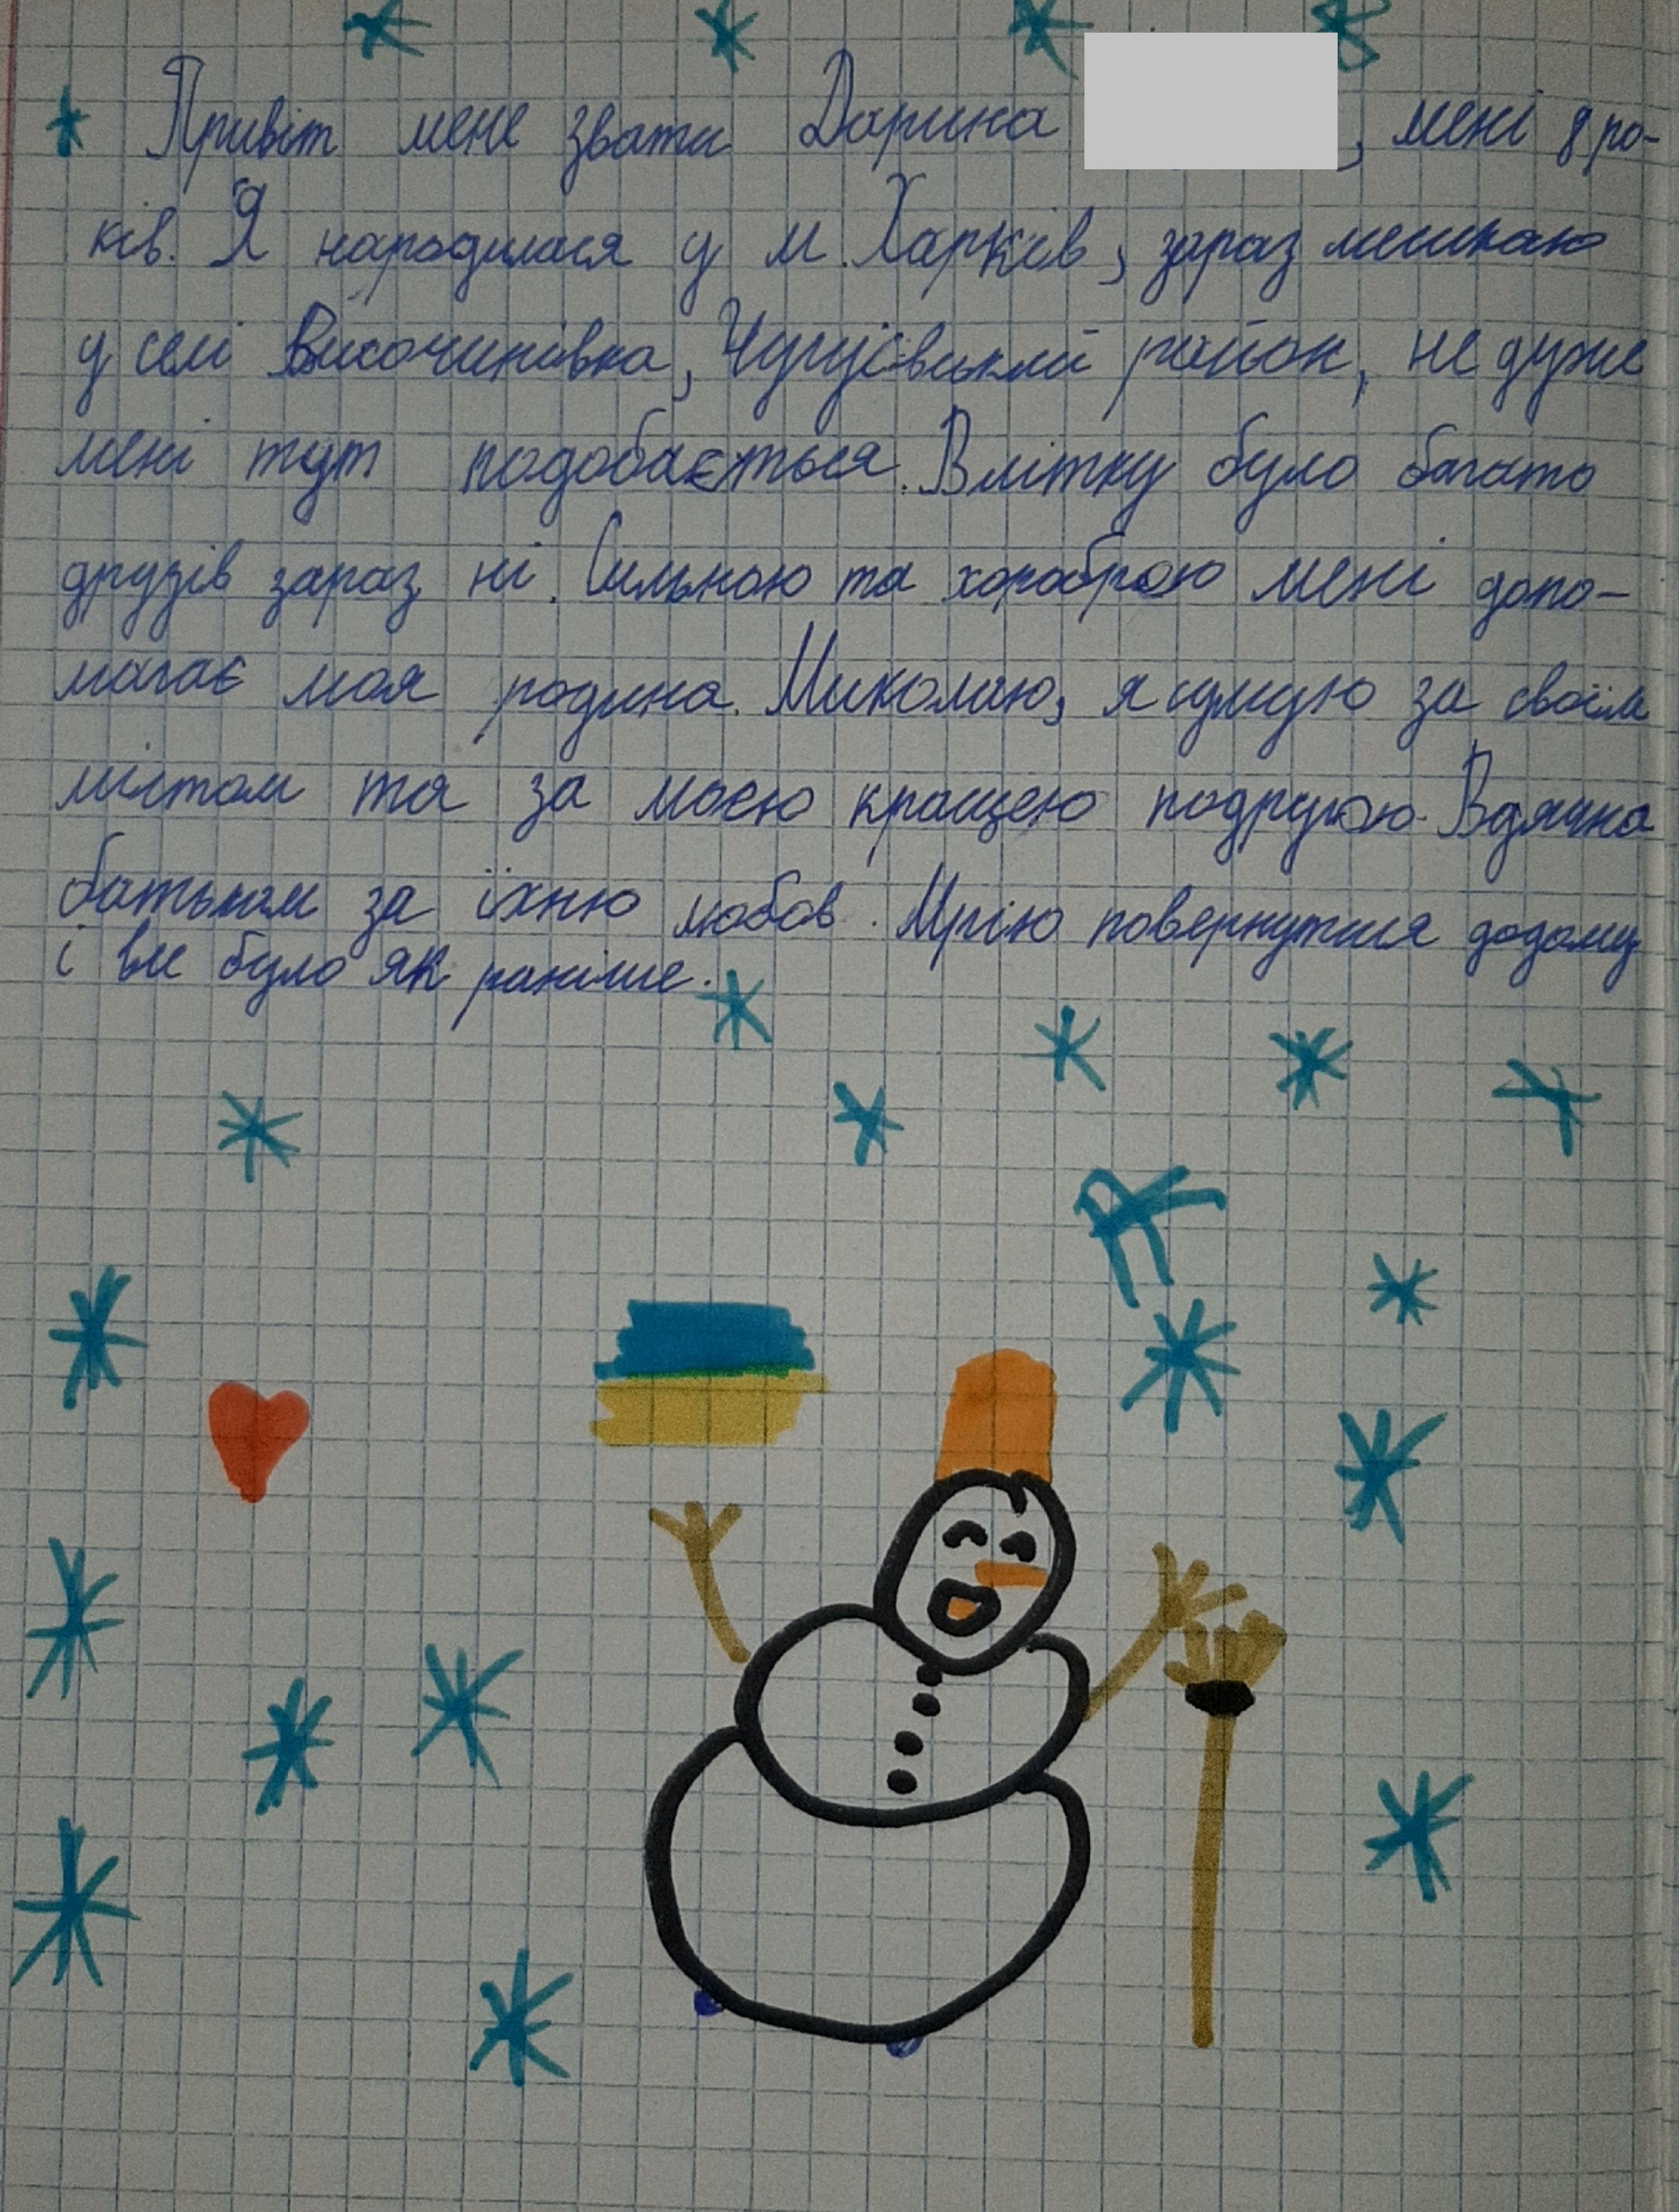 Привіт мене звати Дарина , мені 8 ро-
ків. Я народилася у м. Харків, зараз мешкаю
у селі Височинівка, Чугуївський район, не дуже
мені тут подобається. Влітку було багато
друзів зараз ні. Сильною та хороброю мені допо-
магає моя родина. Миколаю, я сумую за своїм
містом та за моєю кращею подругою. Вдячна
батькам за їхню любов. Мрію повернутися додому
і все було як раніше.